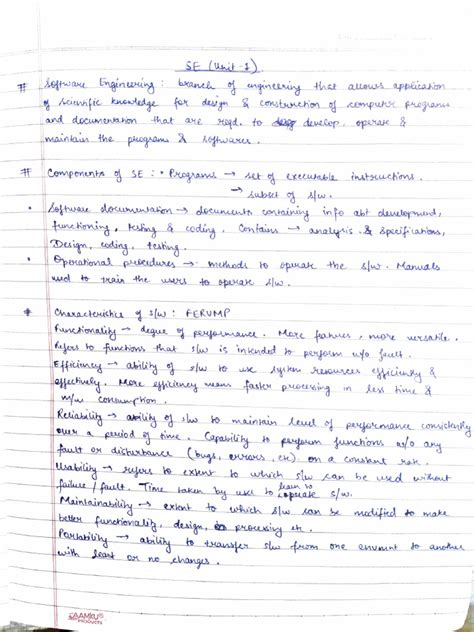 SE (Unit-1)
# Software Engineering : branch of engineering that allows application
of scientific knowledge for design & construction of computer programs
and documentation that are reqd. to develop, operate &
maintain the programs & softwares.
# Components of SE : • Programs → set of executable instructions.
→ subset of s/w.
• Software documentation → documents containing info abt development,
functioning, testing & coding. Contains → analysis & specifications,
Design, coding, testing.
• Operational procedures → methods to operate the s/w. Manuals
used to train the users to operate s/w.
# Characteristics of s/w : FERUMP
Functionality → degree of performance. More features, more versatile.
Refers to functions that s/w is intended to perform w/o fault.
Efficiency → ability of s/w to use system resources efficiently &
effectively. More efficiency means faster processing in less time &
m/w consumption.
Reliability → ability of s/w to maintain level of performance consistently
over a period of time. Capability to perform functions w/o any
fault or disturbance (bugs, errors, etc) on a constant rate.
Usability → refers to extent to which s/w can be used without
failure/fault. Time taken by user to learn to operate s/w.
Maintainability → extent to which s/w can be modified to make
better functionality, design, processing etc.
Portability → ability to transfer s/w from one envment to another
with least or no changes.
SAAMKU
PRODUCTS